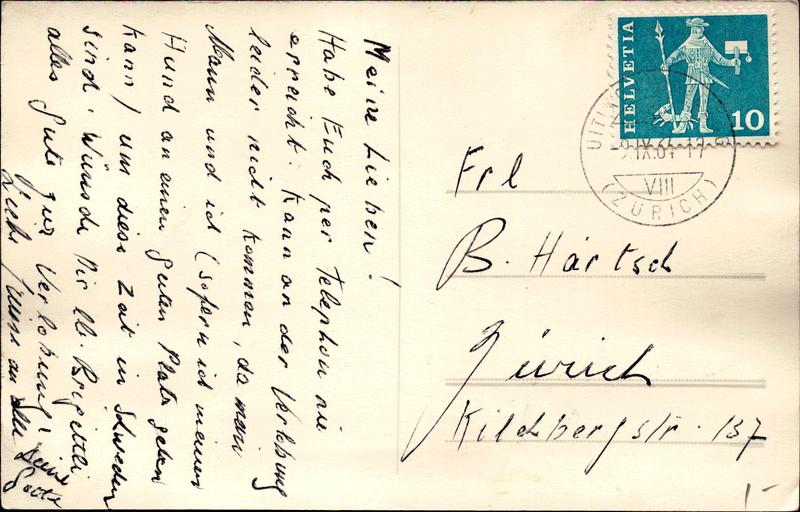 Meine Lieben!
Habe Euch per Telephon nie
erreicht. Kann an der Verlobung
leider nicht kommen, da mein
Mann und ich (sofern ich meinen
Hund an einen guten Platz geben
kann) um diese Zeit in Schweden
sind. Wünsche Dir lb. Brigittli
alles Gute zur Verlobung!
Liebe Grüsse an alle Deine
Gotte
HELVETIA
10
UITIKON
9.IX.64-17
VIII
(ZÜRICH)
Frl
B. Härtsch
Zürich
Kilchbergstr. 137
1-